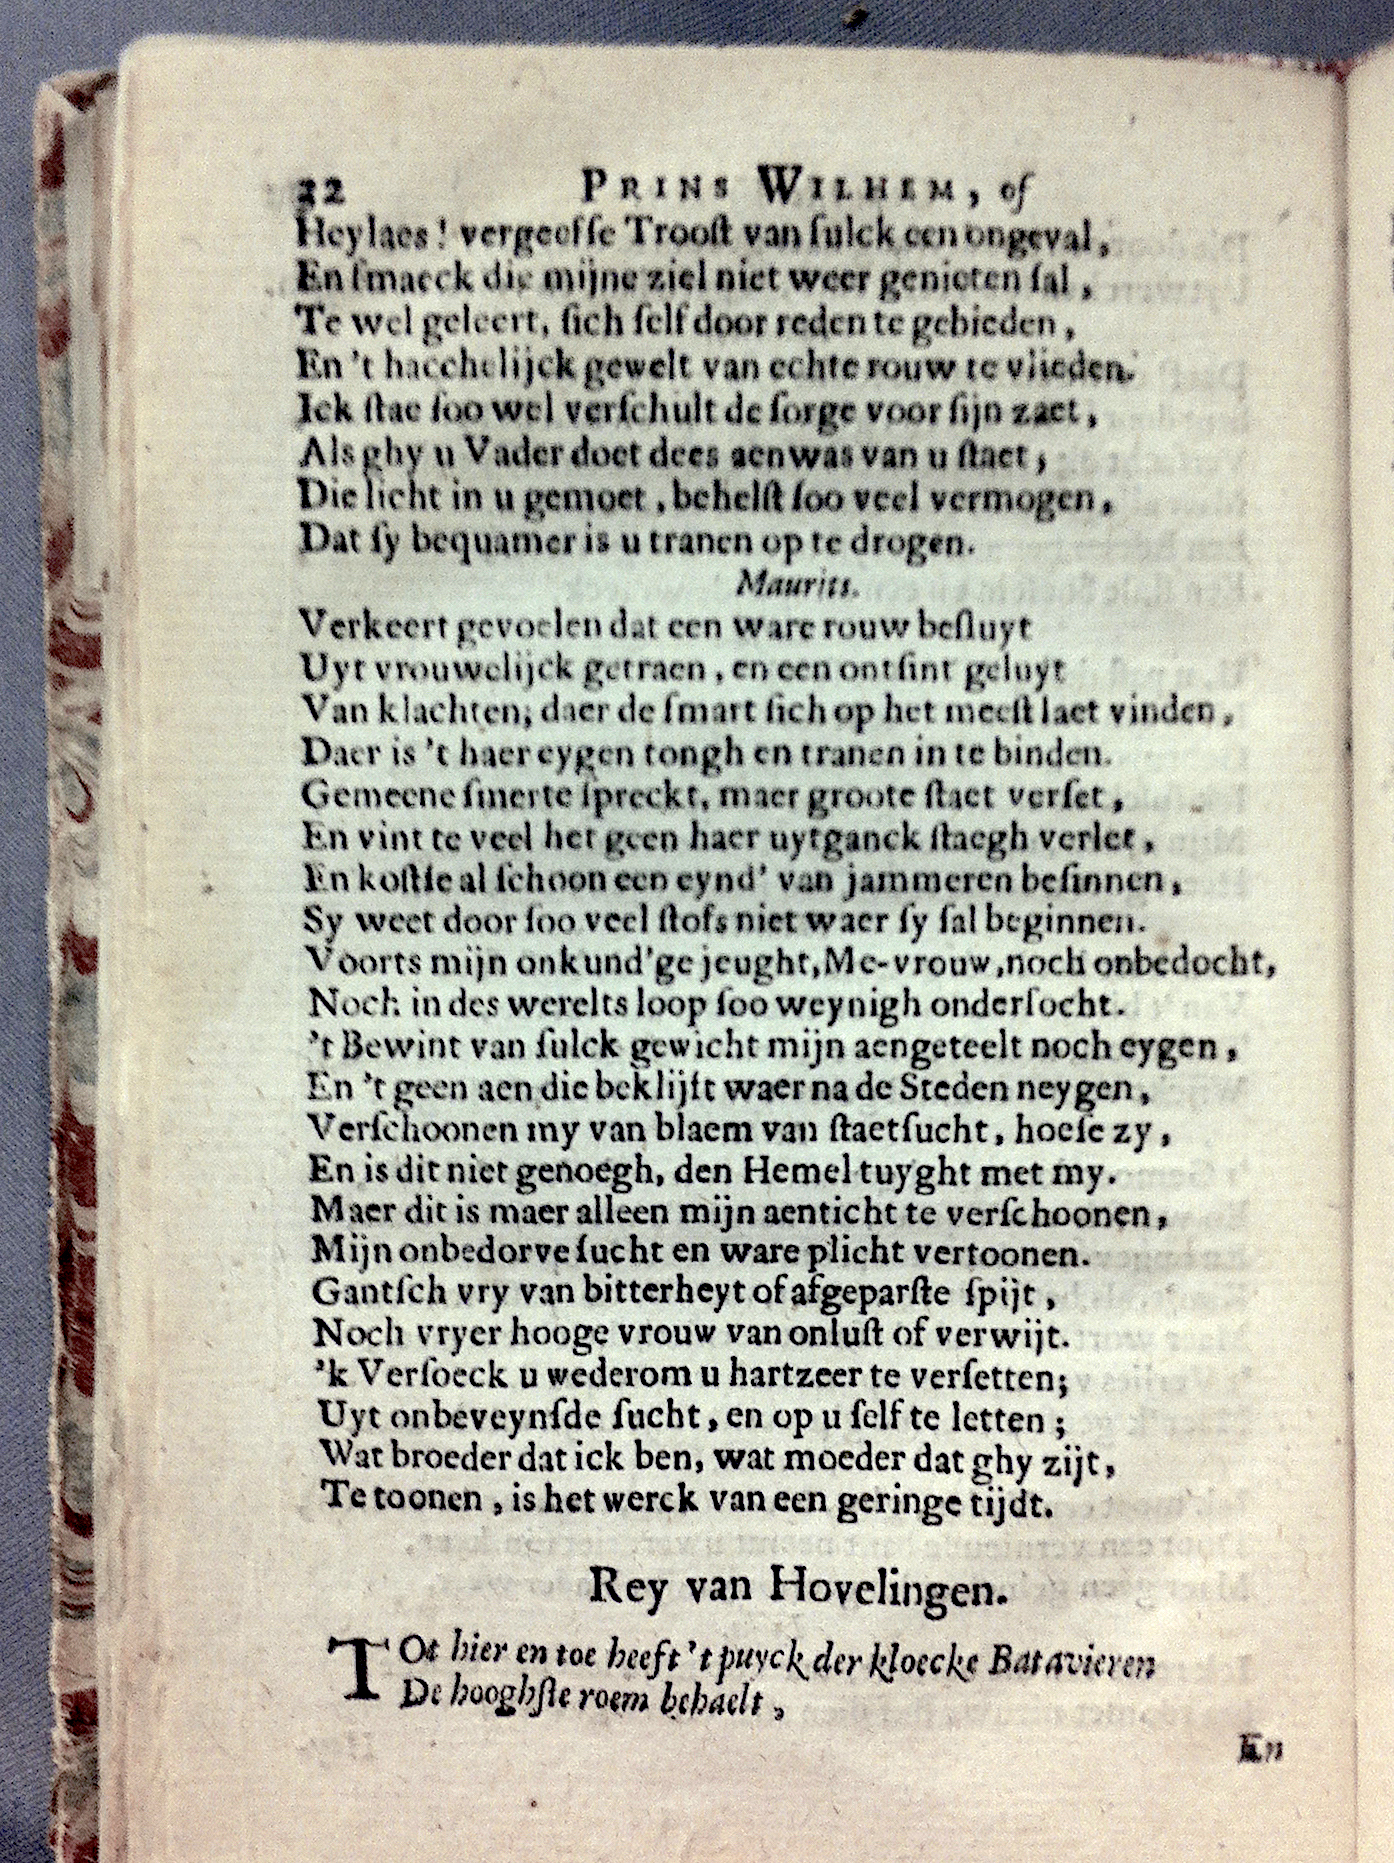 22 PRINS WILHEM, of
Heylaes! vergeefse Troost van ſulck een ongeval,
En ſmaeck die mijne ziel niet weer genieten ſal,
Te wel geleert, ſich ſelf door reden te gebieden,
En 't hacchelijck gewelt van echte rouw te vlieden.
Ick ſtae ſoo wel verſchult de ſorge voor ſijn zaet,
Als ghy u Vader doet dees aenwas van u ſtaet,
Die licht in u gemoet, behelſt ſoo veel vermogen,
Dat ſy bequamer is u tranen op te drogen.
Maurits.
Verkeert gevoelen dat een ware rouw beſluyt
Uyt vrouwelijck getraen, en een ontſint geluyt
Van klachten; daer de ſmart ſich op het meeſt laet vinden,
Daer is 't haer eygen tongh en tranen in te binden.
Gemeene ſmerte ſpreckt, maer groote ſtaet verſet,
En vint te veel het geen haer uytganck ſtaegh verlet,
En koſtſe al ſchoon een eynd' van jammeren beſinnen,
Sy weet door ſoo veel ſtofs niet waer ſy ſal beginnen.
Voorts mijn onkund'ge jeught, Me-vrouw, noch onbedocht,
Noch in des werelts loop ſoo weynigh onderſocht.
't Bewint van ſulck gewicht mijn aengeteelt noch eygen,
En 't geen aen die beklijft waer na de Steden neygen,
Verſchoonen my van blaem van ſtaetſucht, hoeſe zy,
En is dit niet genoegh, den Hemel tuyght met my.
Maer dit is maer alleen mijn aenticht te verſchoonen,
Mijn onbedorve ſucht en ware plicht vertoonen.
Gantſch vry van bitterheyt of afgeparſte ſpijt,
Noch vryer hooge vrouw van onluſt of verwijt.
'k Verſoeck u wederom u hartzeer te verſetten;
Uyt onbeveynſde ſucht, en op u ſelf te letten;
Wat broeder dat ick ben, wat moeder dat ghy zijt,
Te toonen, is het werck van een geringe tijdt.
Rey van Hovelingen.
TOt hier en toe heeft 't puyck der kloecke Batavieren
De hooghſte roem behaelt,
En